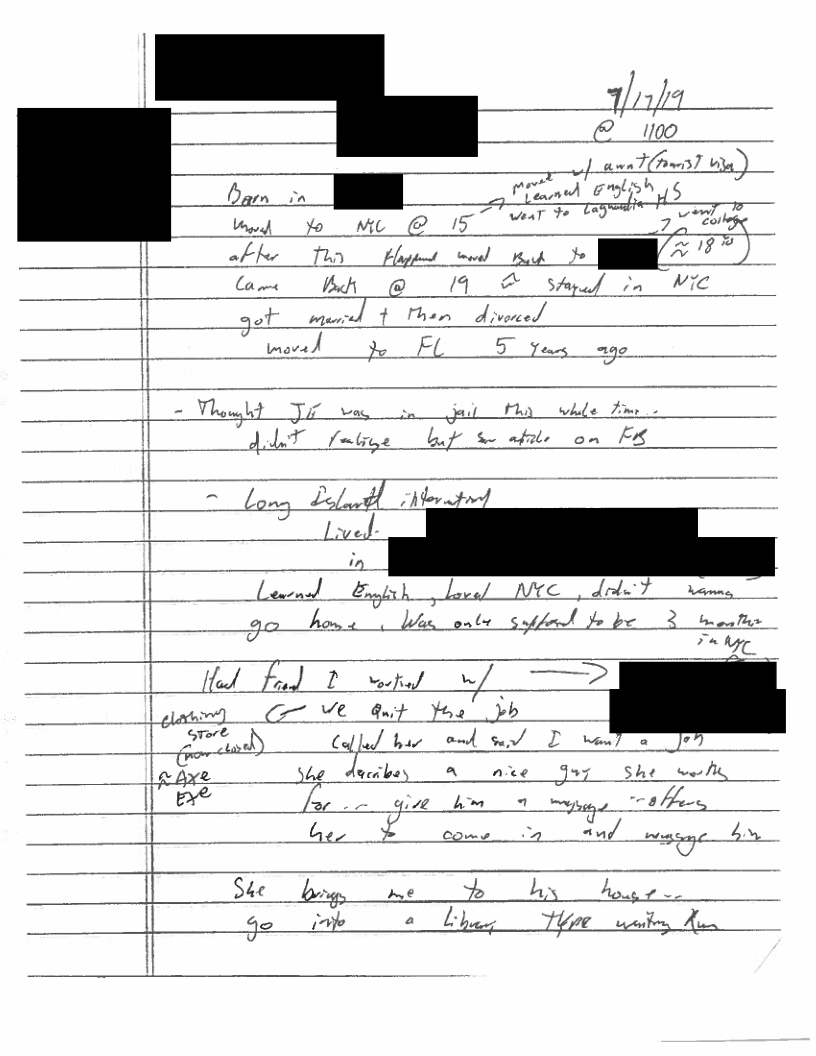 7/17/19
@ 1100
Born in
moved w/ aunt (tourist visa)
Learned English
went to Laguardia HS
moved to NYC @ 15
went to college
after this Happened moved Back to (≈ 18 yo)
Came Back @ 19 stayed in NYC
got married + then divorced
moved to FL 5 years ago
- Thought JE was in jail this whole time..
didn't realize but saw article on FB
- Long Island information
Lived
in
Learned English, Loved NYC, didn't wanna
go home, Was only supposed to be 3 months
in NYC
Had friend I worked w/
clothing store (now closed)
≈ Axe
Exe
we quit the job
Called her and said I want a job
She describes a nice guy she works
for... give him a massage -- offers
her to come in and massage him
She brings me to his house--
go into a Library type waiting Rm